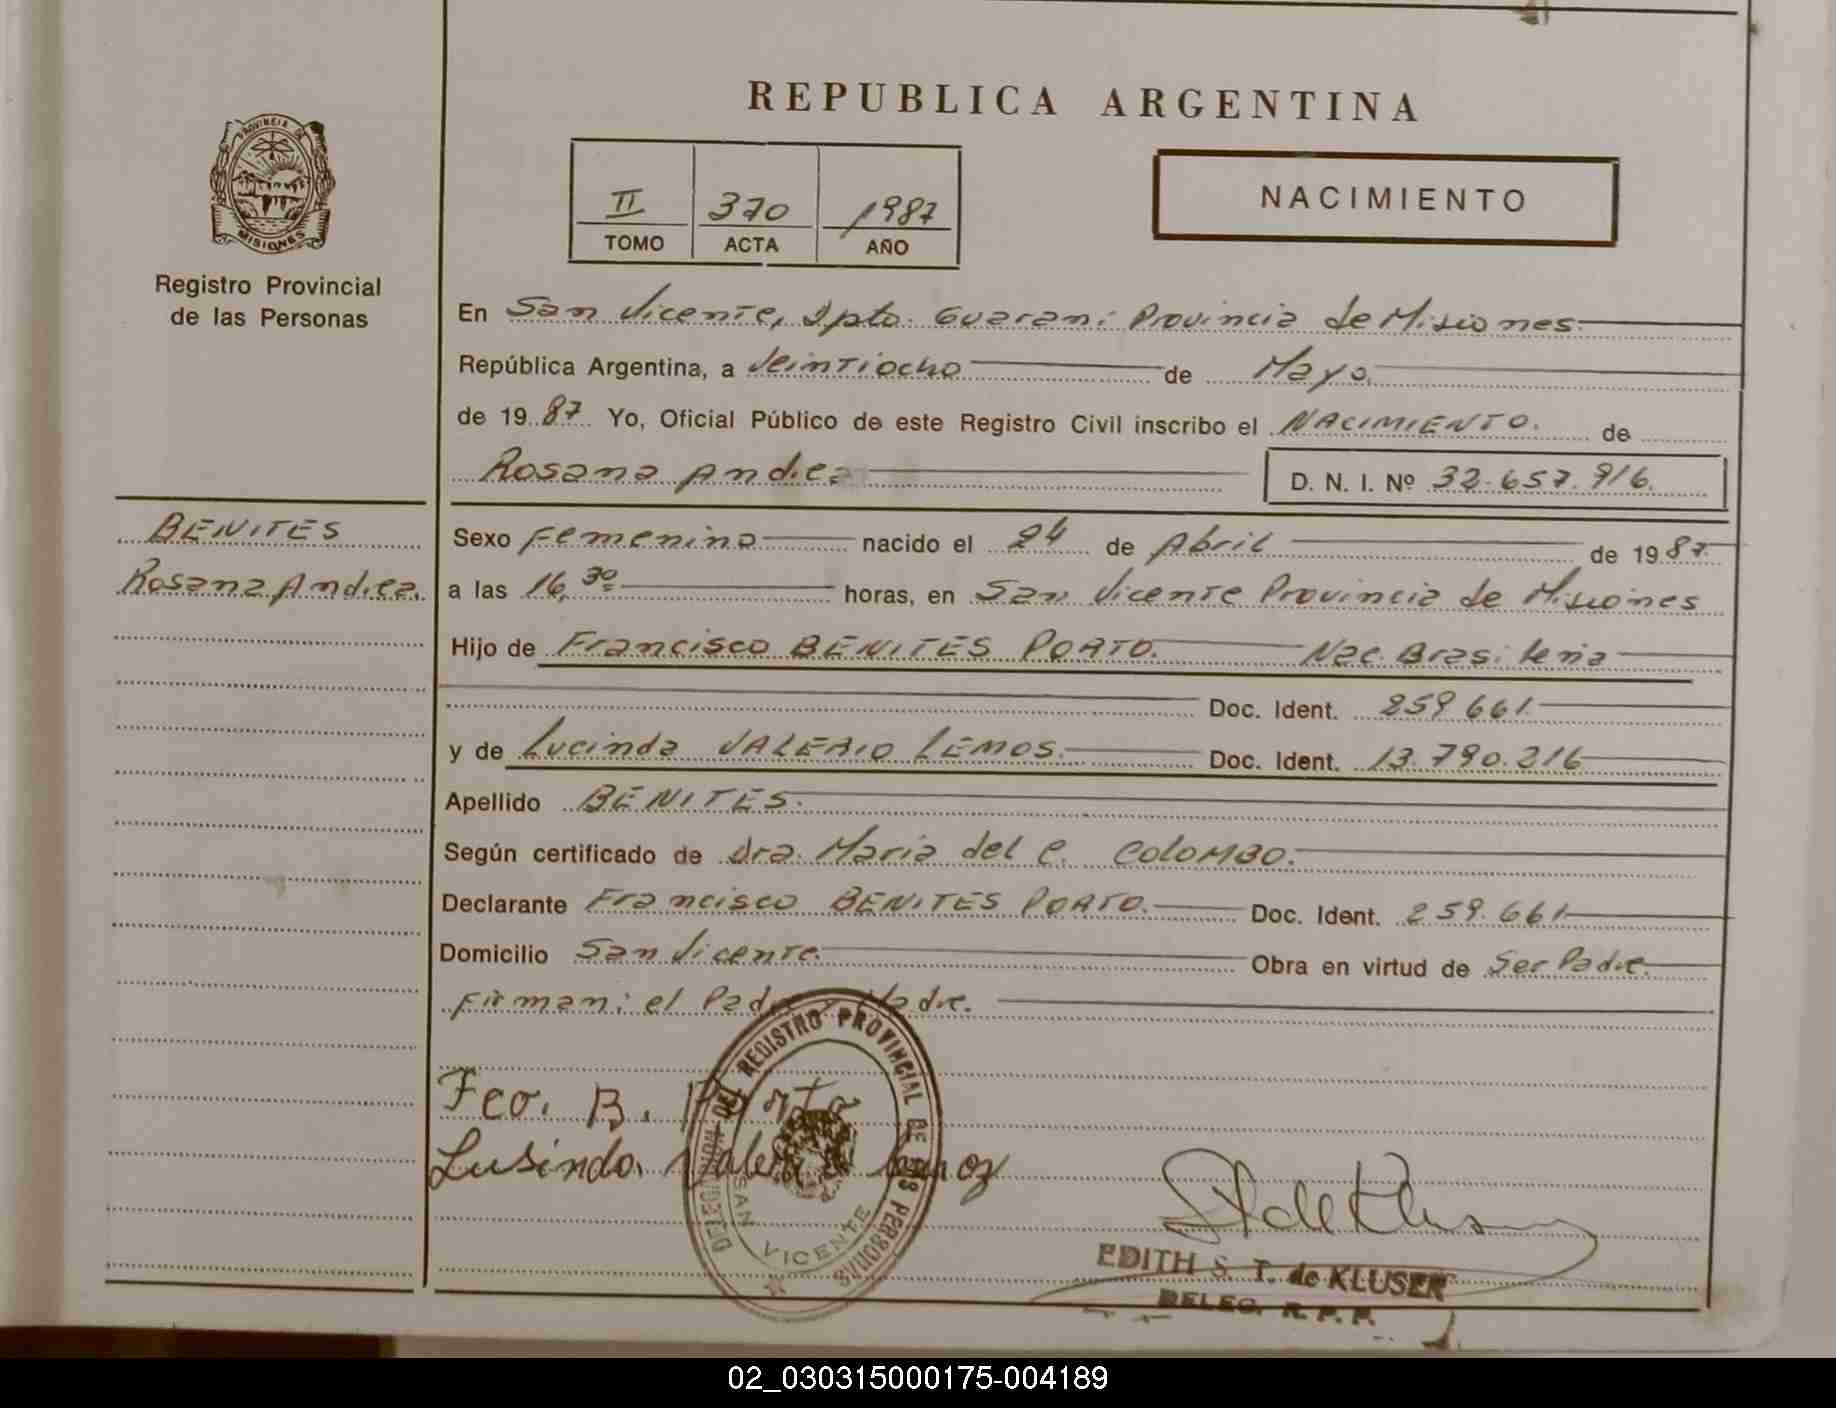 REPUBLICA ARGENTINA
PROVINCIA DE
MISIONES
Registro Provincial
de las Personas
II 370 1987
TOMO ACTA AÑO
NACIMIENTO
En San Vicente, Dpto. Guarani Provincia de Misiones
República Argentina, a Veintiocho de Mayo
de 1987 Yo, Oficial Público de este Registro Civil inscribo el NACIMIENTO. de
Rosana Andrea D. N. I. Nº 32.657.916.
BENITES
Rosana Andrea.
Sexo Femenino nacido el 24 de Abril de 1987
a las 16,30 horas, en San Vicente Provincia de Misiones
Hijo de Francisco BENITES PORTO. Nac. Brasileña
Doc. Ident. 259.661.
y de Lucinda VALERIO LEMOS. Doc. Ident. 13.790.216
Apellido BENITES.
Según certificado de Dra. Maria del C. COLOMBO.
Declarante Francisco BENITES PORTO. Doc. Ident. 259.661
Domicilio San Vicente. Obra en virtud de Ser Padre.
Firman: el Padre y Madre.
Fco. B. Porto
Lusinda
DELEGACION DEL REGISTRO PROVINCIAL DE LAS PERSONAS
SAN VICENTE
EDITH S. T. de KLUSER
DELEG. R. P. P.
02_030315000175-004189